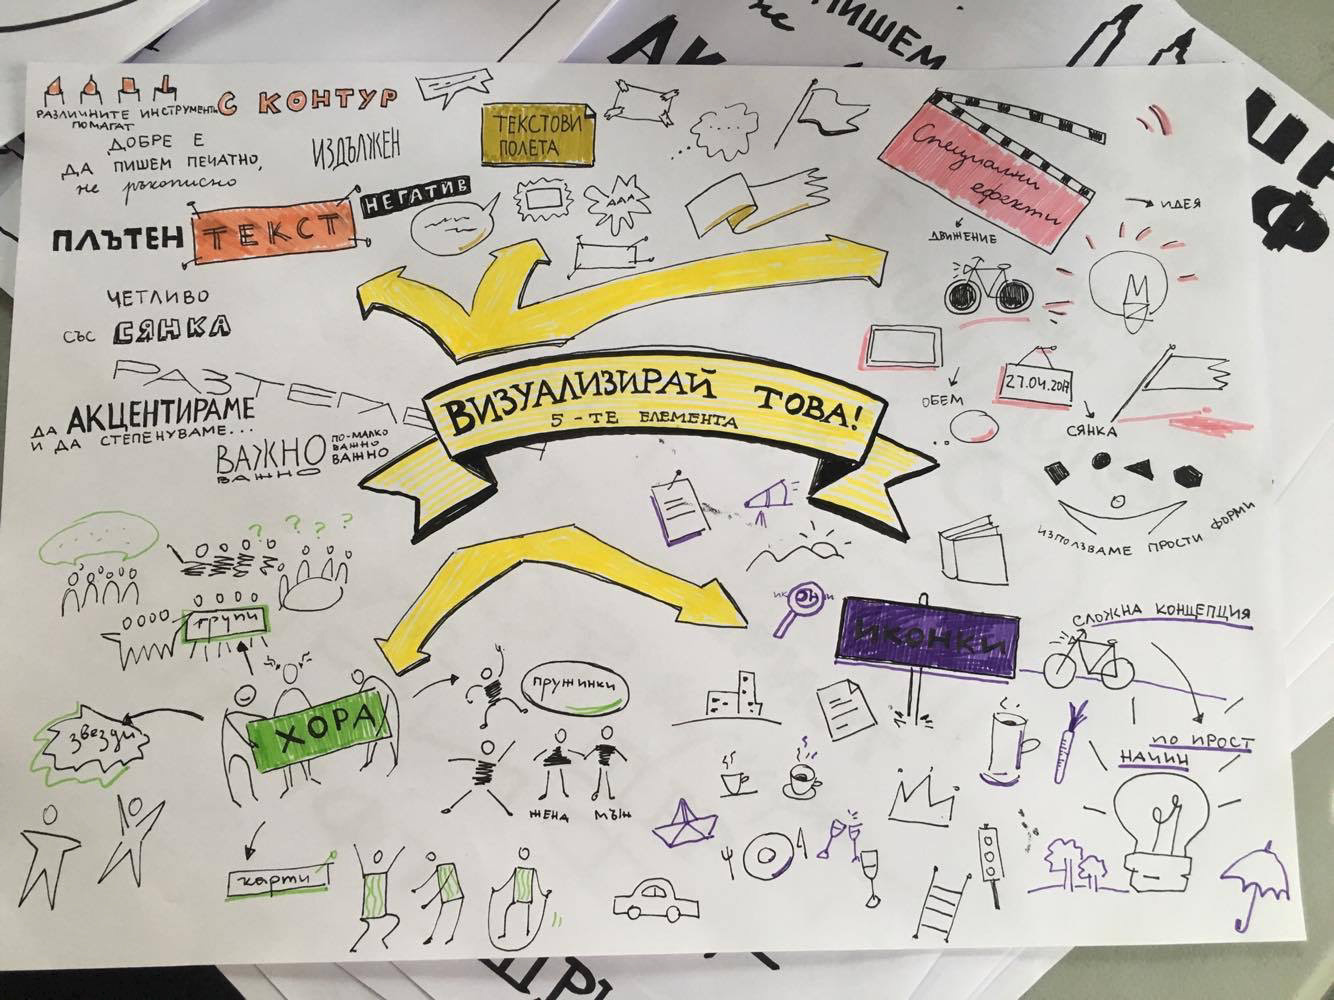 ПИШЕМ
не
РАЗЛИЧНИТЕ ИНСТРУМЕНТИ
ПОМАГАТ
С КОНТУР
ДОБРЕ Е
ДА ПИШЕМ ПЕЧАТНО,
не ръкописно
ИЗДЪЛЖЕН
ПЛЪТЕН
ТЕКСТ
НЕГАТИВ
ЧЕТЛИВО
СЪС СЯНКА
ДА АКЦЕНТИРАМЕ
И ДА СТЕПЕНУВАМЕ...
ВАЖНО
ВАЖНО
ПО-МАЛКО
ВАЖНО
ВАЖНО
ТЕКСТОВИ
ПОЛЕТА
ААА
Специални
ефекти
ДВИЖЕНИЕ
ИДЕЯ
ОБЕМ
27.04.2017
СЯНКА
ИЗПОЛЗВАМЕ ПРОСТИ ФОРМИ
ВИЗУАЛИЗИРАЙ ТОВА!
5-ТЕ ЕЛЕМЕНТА
? ? ? ?
групи
ХОРА
звезди
карти
пружинки
ЖЕНА
МЪЖ
ИКОНИ
ИКОНКИ
СЛОЖНА КОНЦЕПЦИЯ
ПО ПРОСТ
НАЧИН